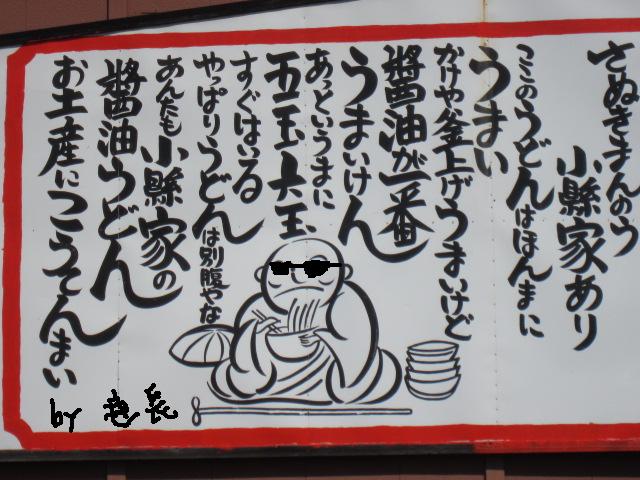 さぬきまんのう
小縣家あり
ここのうどんはほんまに
うまい
かけや釜上げうまいけど
醬油が一番
うまいけん
あっというまに
五玉六玉
すぐはいる
やっぱりうどんは別腹やな
あんたも小縣家の
醬油うどん
お土産にこうてんまい
by